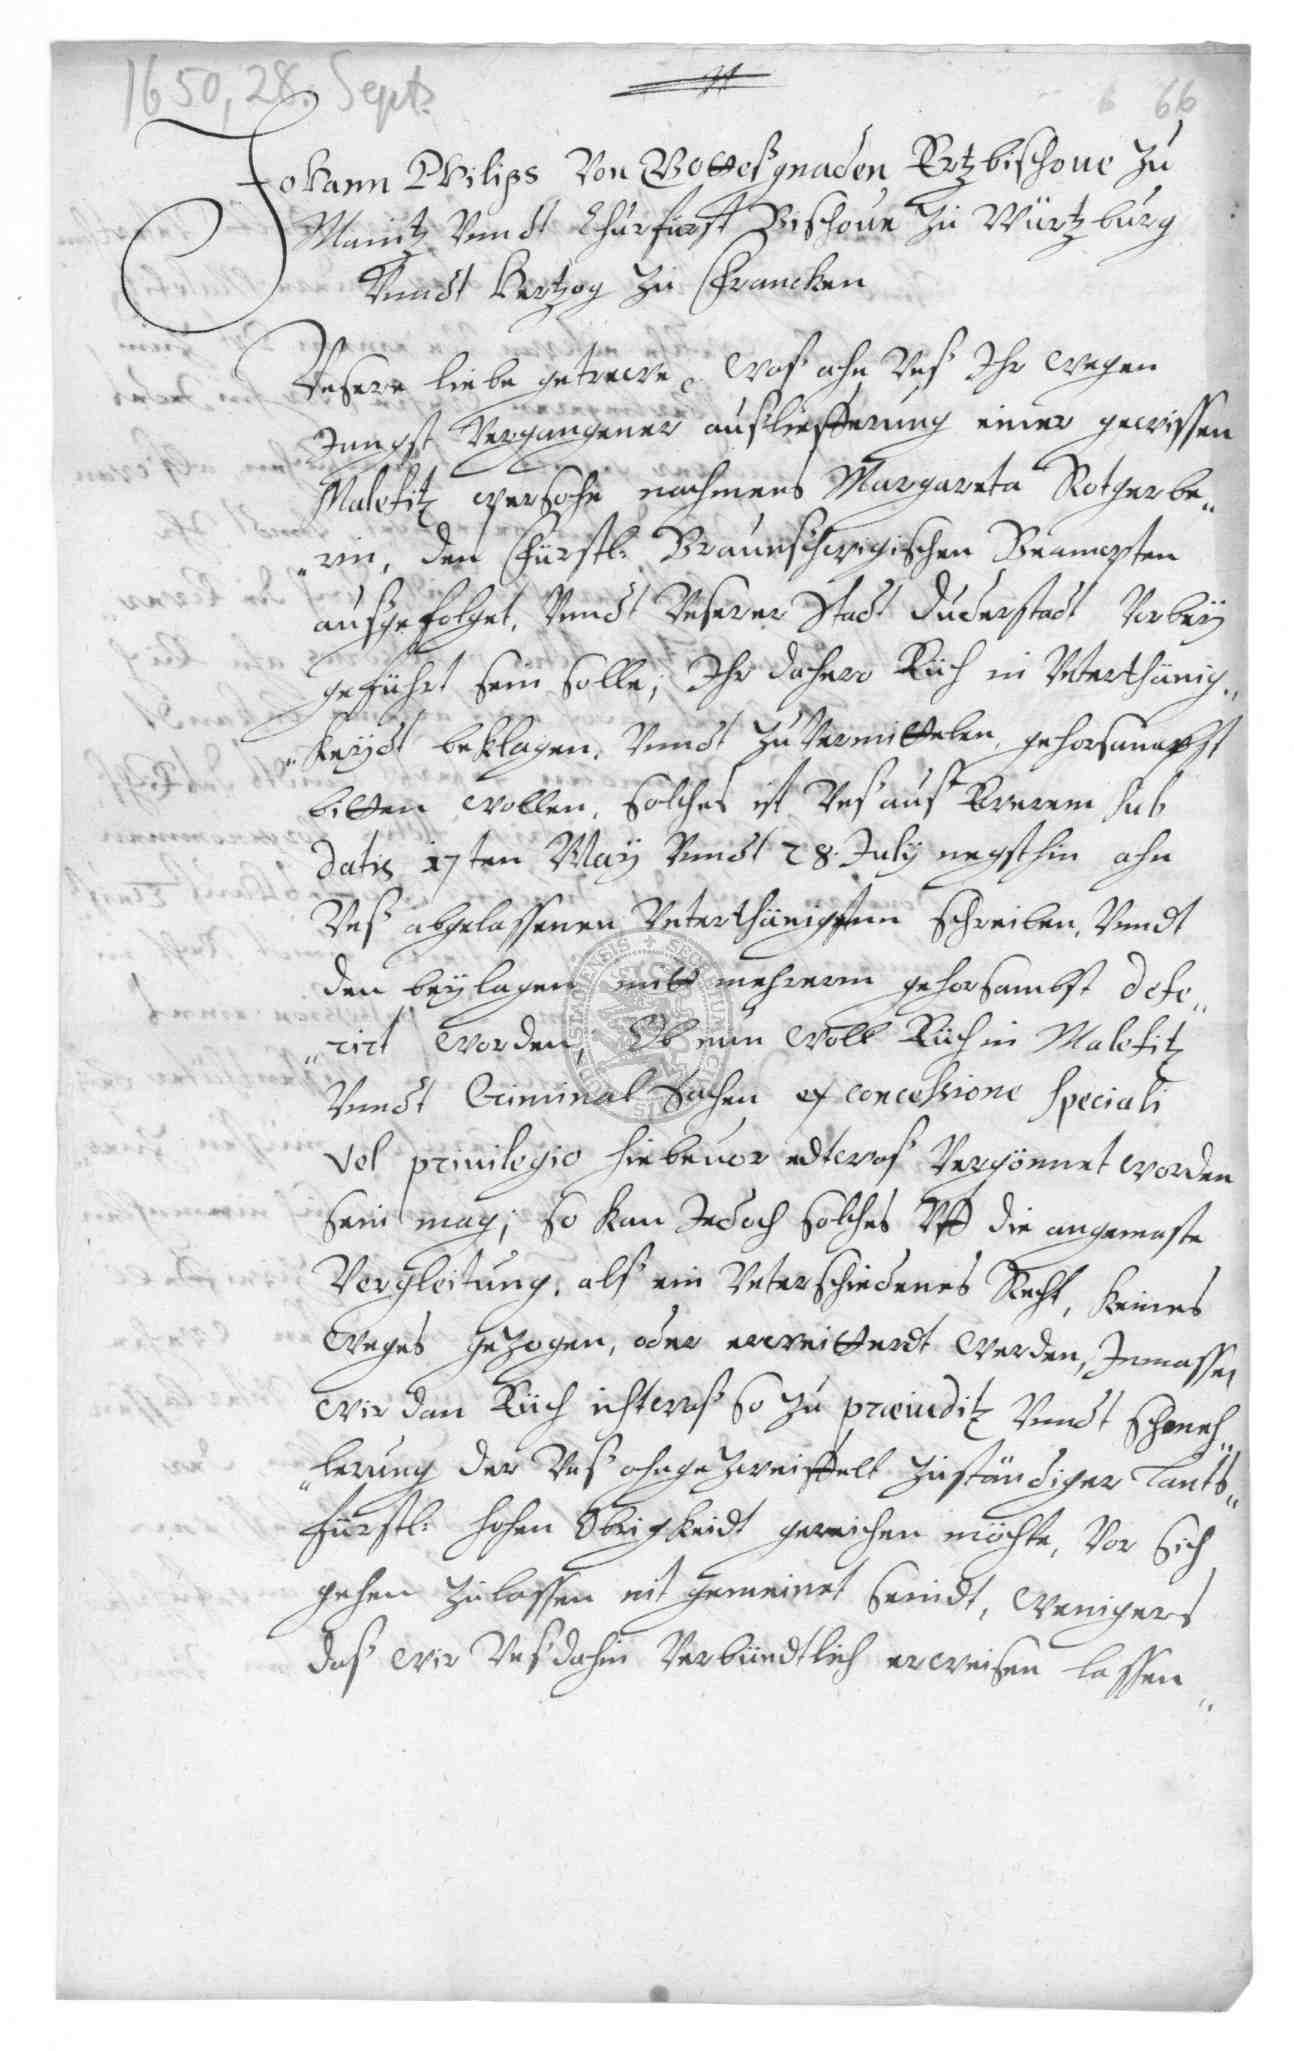 1650, 28. Sept.
6 66
Johann Philips Von Gottes gnaden Ertzbischoue zu
Maintz Vnndt Churfürst Bischoue zu Würtzburg
Vnndt Hertzog zu Francken
Vnsere liebe getrewe, Was ahn Vnß Ihr wegen
Jungst Vergangener außliefferung einer gewissen
Malefitz persohn nahmens Margareta Rotgerbe„
„rin, den Fürstl: Braunschwigischen Beampten
außgefolget, Vnndt Vnserer Stadt Duderstadt Vorbeÿ
geführt sein solle; Ihr dahero Euch in Vnterthänig„
„keydt beklagen, Vnndt zu Vermittelen, gehorsambst
bitten wollen, solches ist Vnß auß Ewerem sub
datis 17ten Maÿ Vnndt 28. Julÿ negsthin ahn
Vnß abgelassenen Vnterthänigsten schreiben, Vnndt
den beÿlagen mitt mehrerm gehorsambst defe„
„rirt worden, Ob nun woll Euch in Malefitz
Vnndt Criminal Sachen ex concessione speciali
vel priuilegio hiebeuor edtwaß Vergönnet worden
sein mag; so kan Jedoch solches Vff die angemaste
Vergleitung, alß ein Vnterschiedenes Recht, keines
weges gezogen, oder erweitterdt werden, Inmassen
wir dan Euch ichtwaß so zu præiuditz Vnndt schmeh„
„lerung der Vnß ohngezweiffelt zuständiger Lants„
Fürstl: hohen Obrigkeidt gereichen möchte, Vor sich
gehen zulassen nit gemeinet seindt, wenigers
daß wir Vnß dahin Verbündtlich erweisen lassen„
SIGILLUM CIVITATIS DUDERSTADENSIS